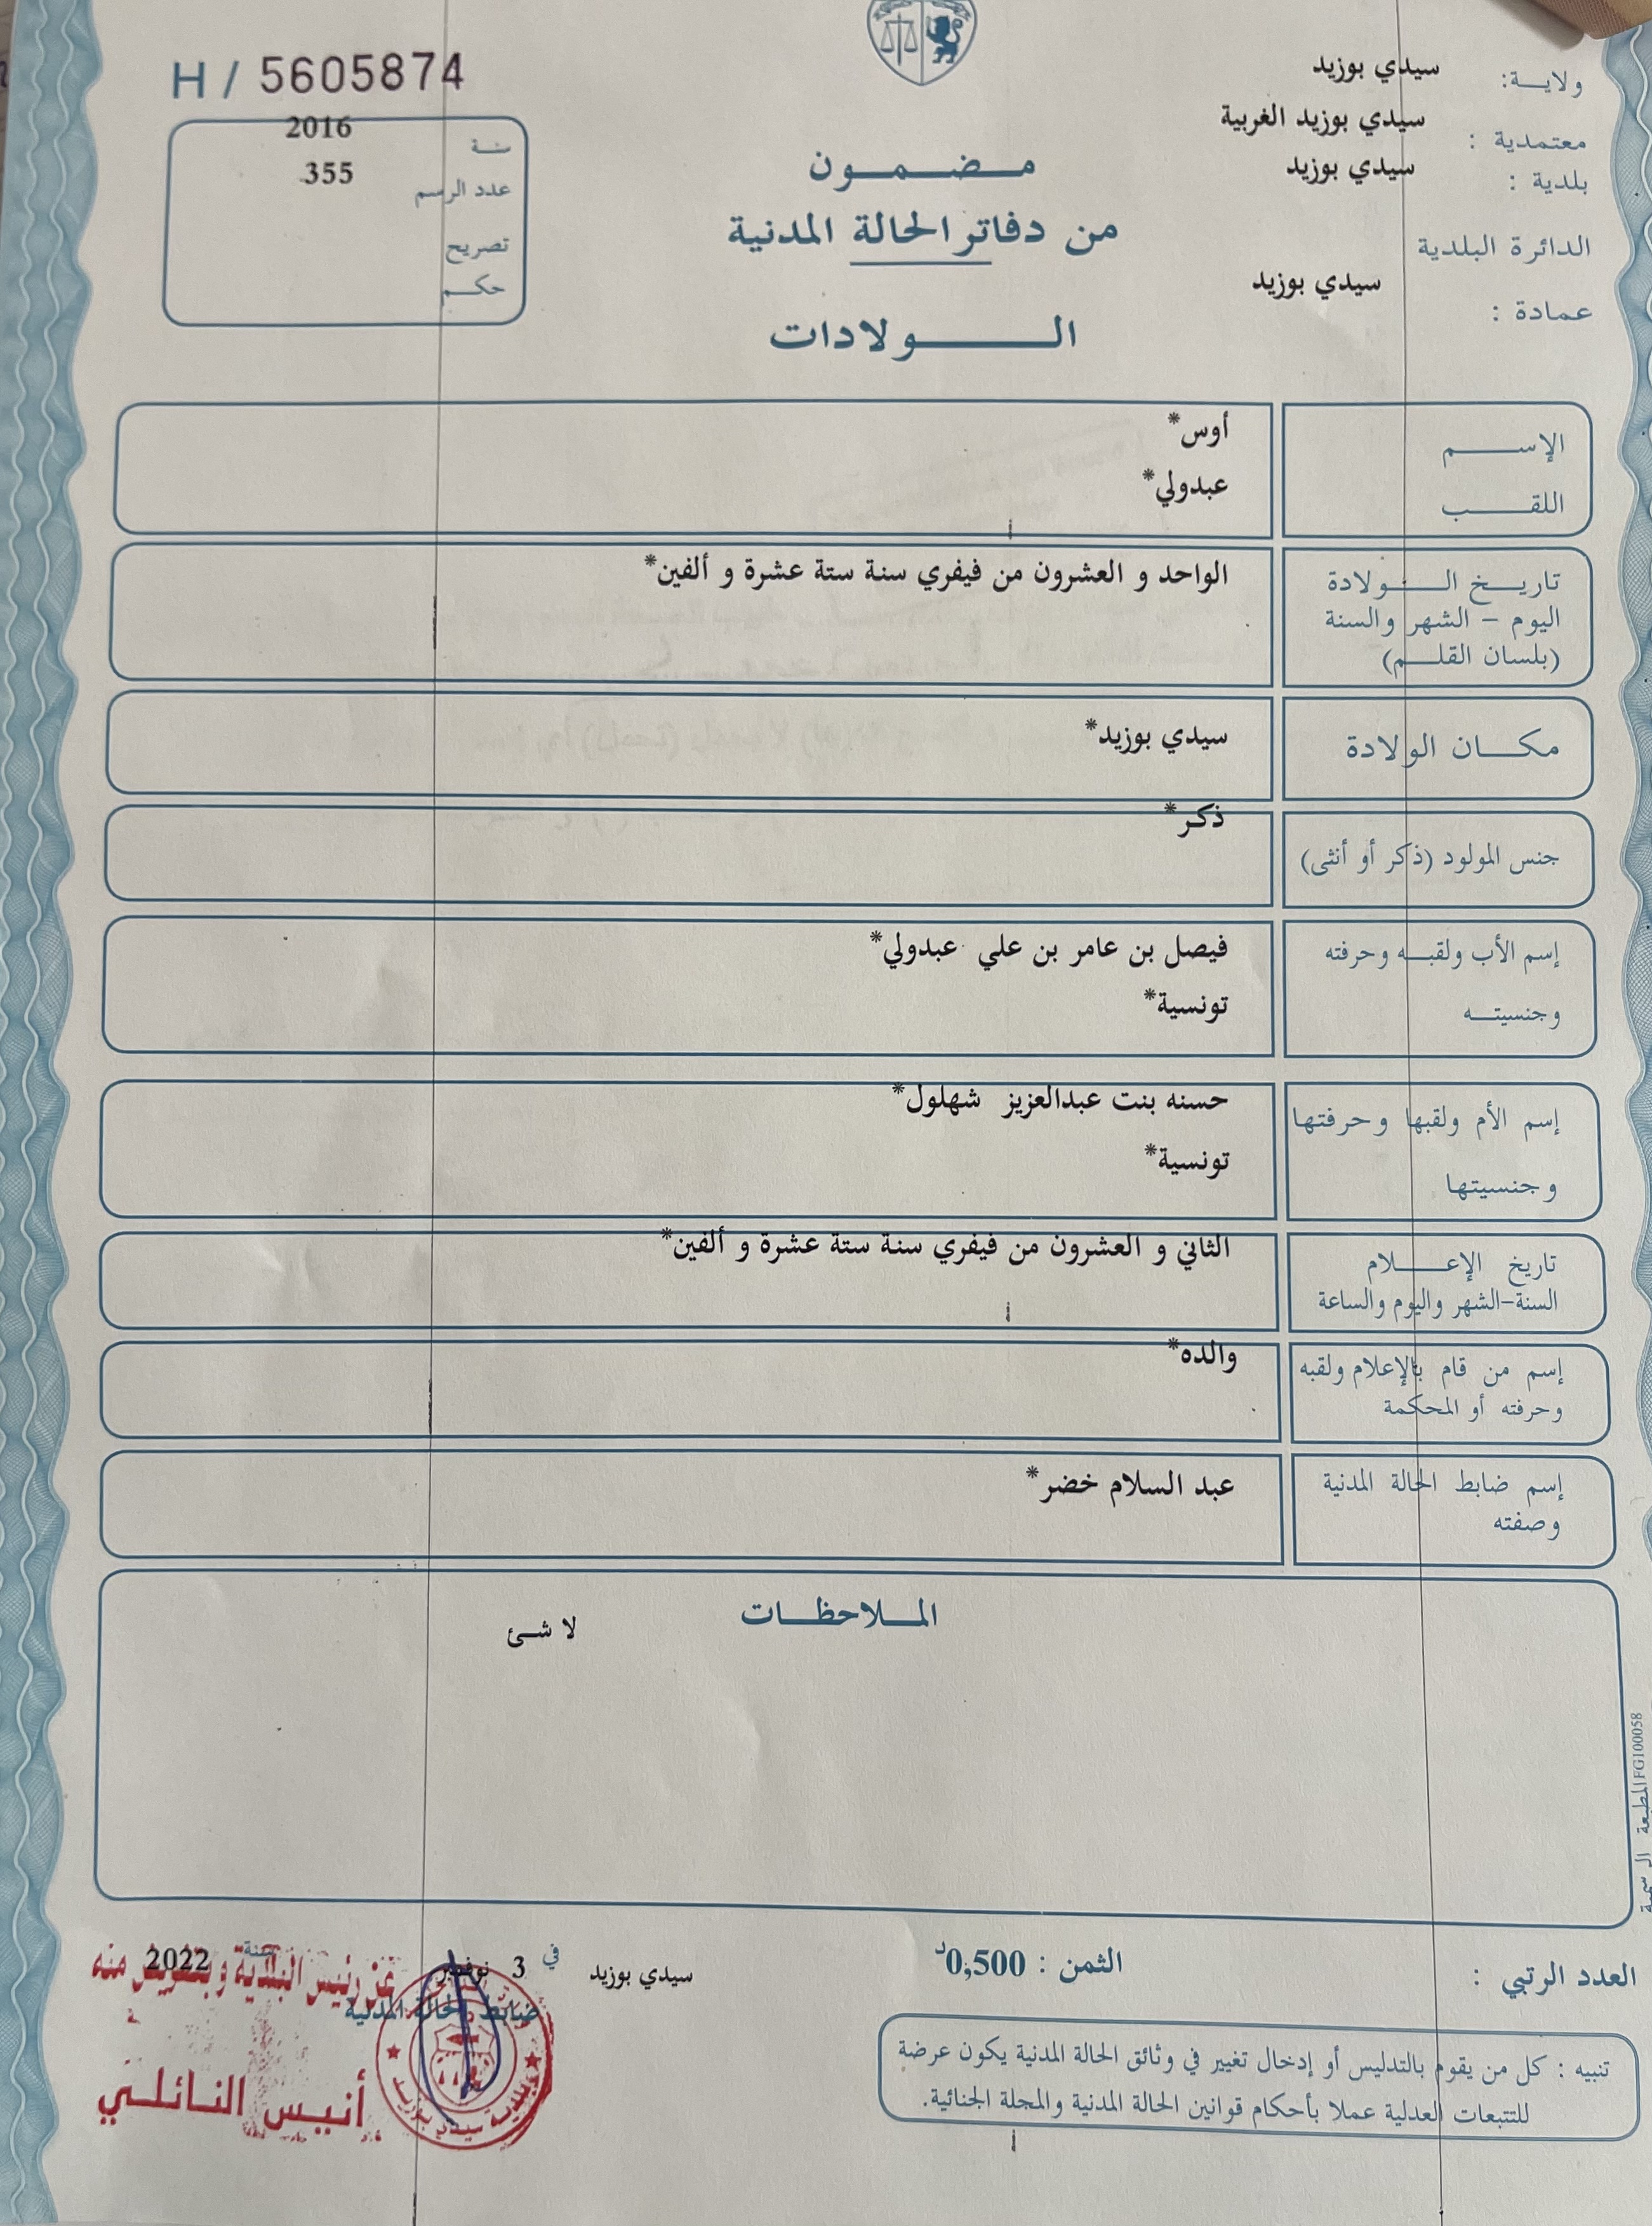 H / 5605874
سنة 2016
عدد الرسم 355
تصريح
حكم
ولاية: سيدي بوزيد
معتمدية : سيدي بوزيد الغربية
بلدية : سيدي بوزيد
الدائرة البلدية
عمادة : سيدي بوزيد
مضمون
من دفاتر الحالة المدنية
الولادات
الإسم أوس*
اللقب عبدولي*
تاريخ الولادة الواحد و العشرون من فيفري سنة ستة عشرة و ألفين*
اليوم – الشهر والسنة
(بلسان القلم)
مكان الولادة سيدي بوزيد*
جنس المولود (ذكر أو أنثى) ذكر*
إسم الأب ولقبه وحرفته فيصل بن عامر بن علي عبدولي*
وجنسيته تونسية*
إسم الأم ولقبها وحرفتها حسنه بنت عبدالعزيز شهلول*
وجنسيتها تونسية*
تاريخ الإعلام الثاني و العشرون من فيفري سنة ستة عشرة و ألفين*
السنة-الشهر واليوم والساعة
إسم من قام بالإعلام ولقبه والده*
وحرفته أو المحكمة
إسم ضابط الحالة المدنية عبد السلام خضر*
وصفته
الملاحظات
لا شئ
المطبعة الرسمية FG100058
العدد الرتبي :
الثمن : 0,500د
سيدي بوزيد في 3 نوفمبر سنة 2022
ضابط الحالة المدنية
عن رئيس البلدية وبتفويض منه
أنيس النائلي
بلدية سيدي بوزيد
تنبيه : كل من يقوم بالتدليس أو إدخال تغيير في وثائق الحالة المدنية يكون عرضة
للتتبعات العدلية عملا بأحكام قوانين الحالة المدنية والمجلة الجنائية.